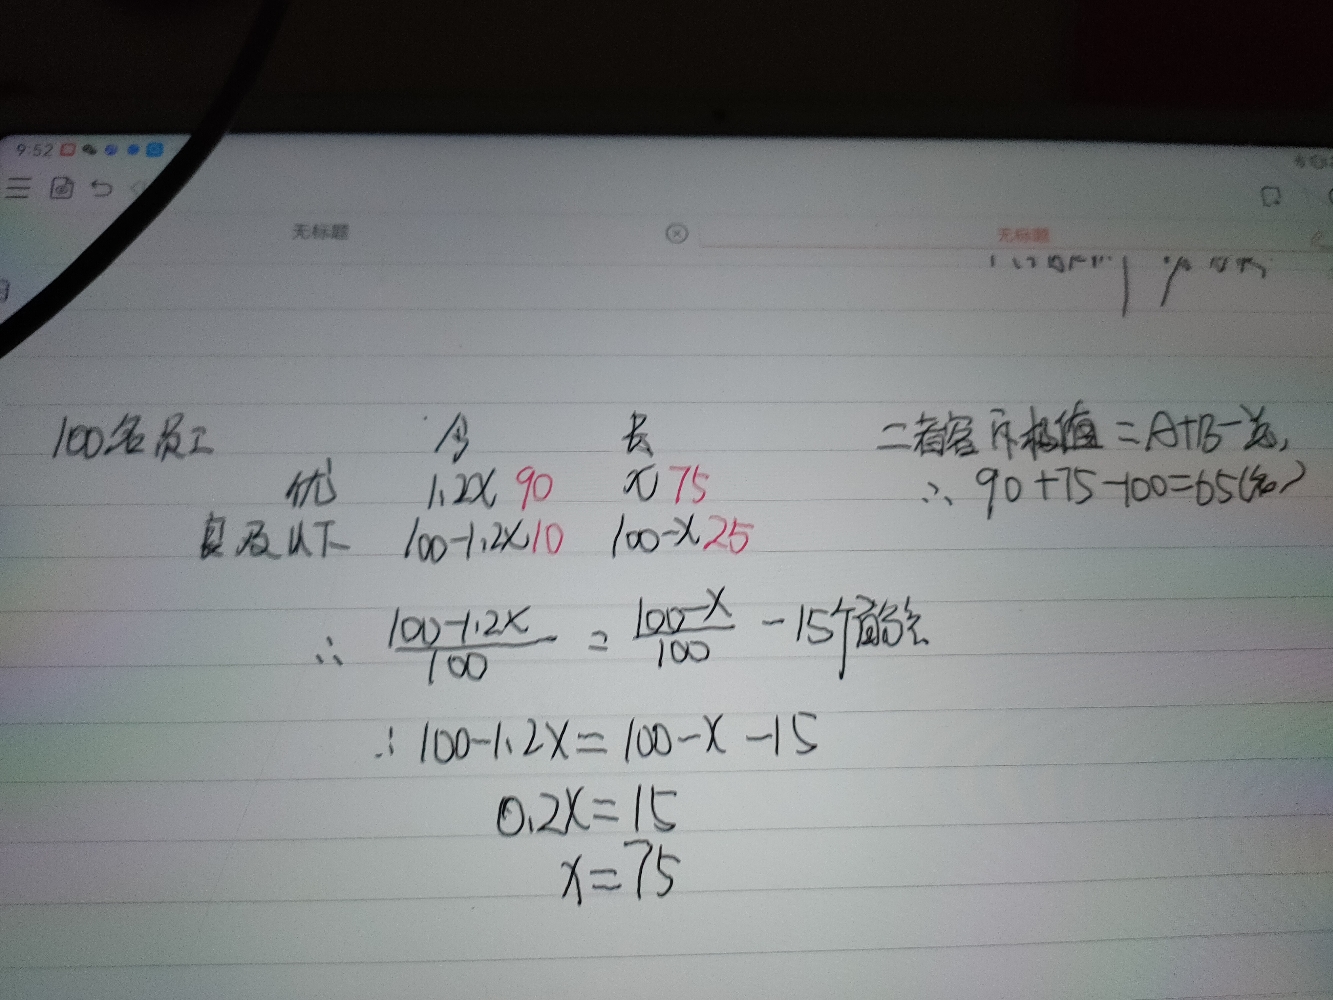 9:52
无标题
无标题
100名员工
今 长
优 1.2x 90 x 75
良及以下 100-1.2x 10 100-x 25
二者容斥极值=A+B-总,
∴ 90+75-100=65(名)
∴ 100-1.2x/100 = 100-x/100 - 15个百分点
∴ 100-1.2x=100-x-15
0.2x=15
x=75